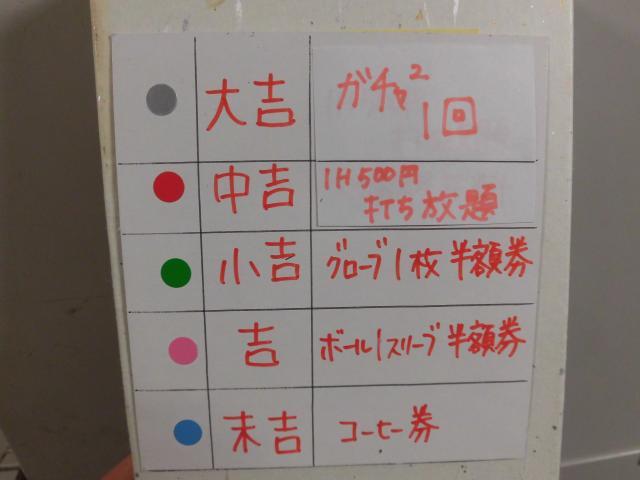 大吉
ガチャ²
1回
中吉
1H500円
打ち放題
小吉
グローブ1枚半額券
吉
ボール1スリーブ半額券
末吉
コーヒー券